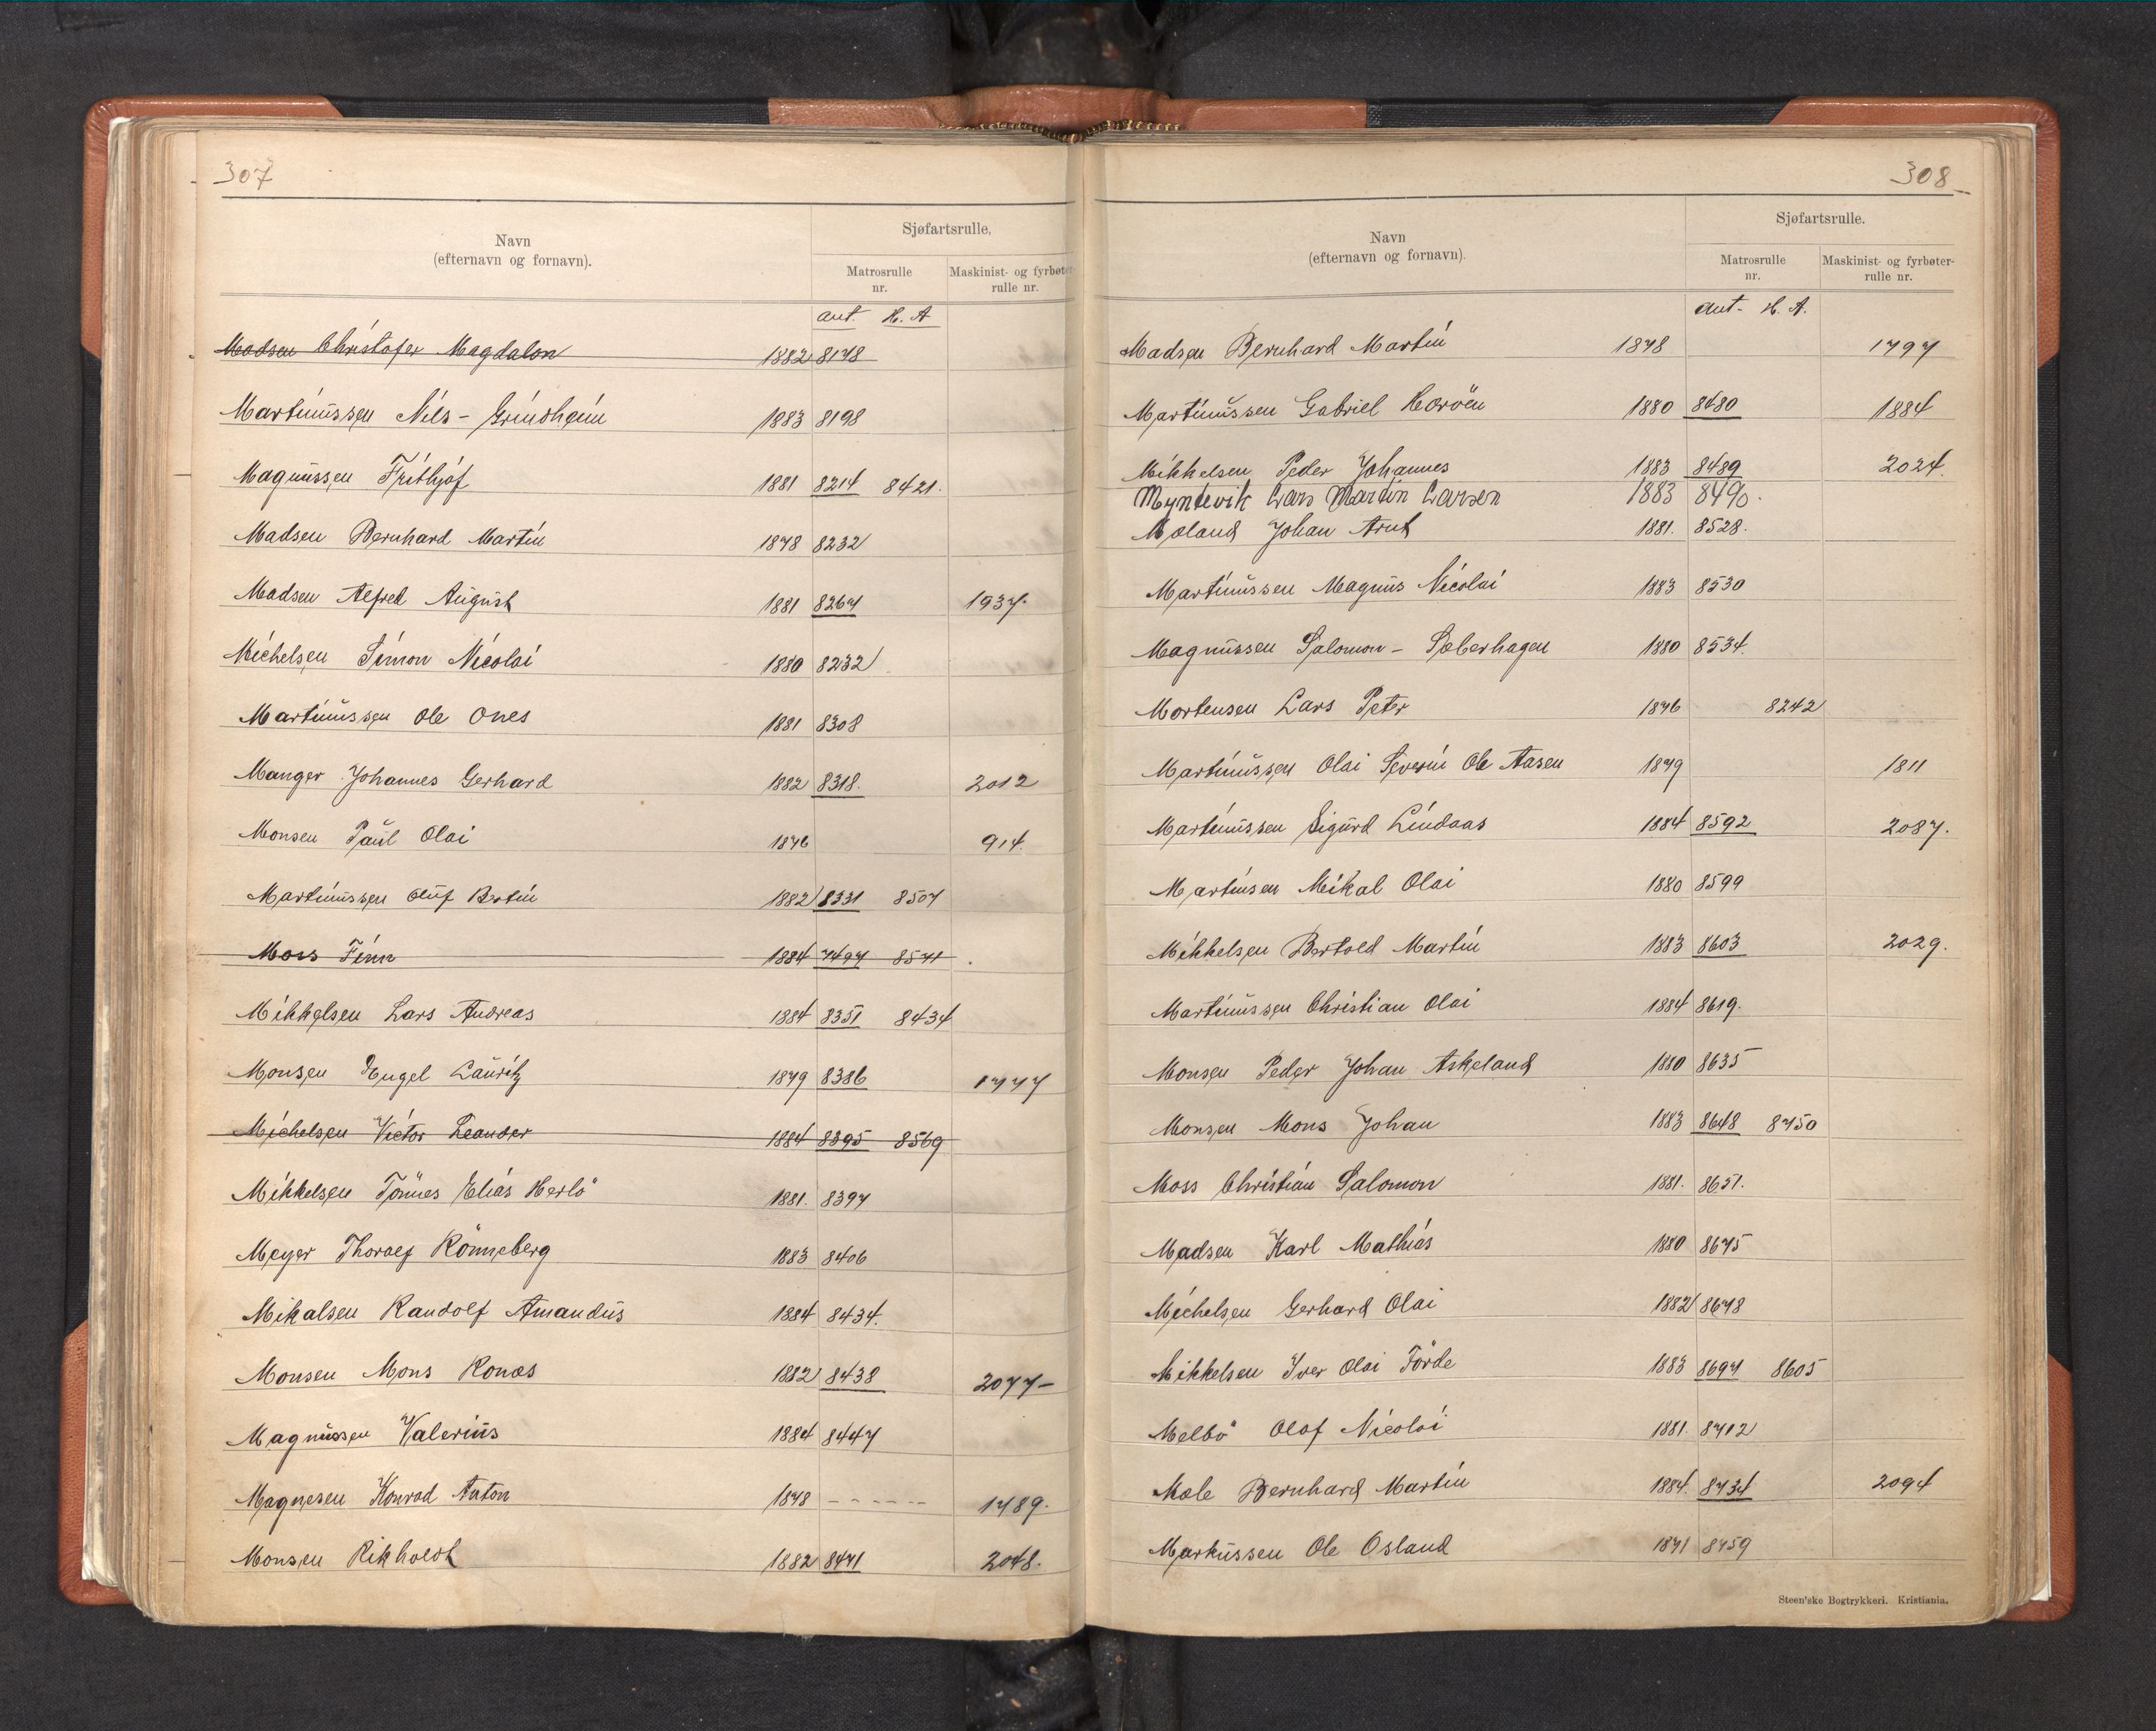 307
Navn
(efternavn og fornavn).
Sjøfartsrulle.
Matrosrulle
nr.
Maskinist- og fyrbøter
rulle nr.
ant. H. A
Madsen Christofer Magdalon 1882 8178
Martinussen Nils - Grindheim 1883 8198
Magnussen Frithjof 1881 8214 8421.
Madsen Bernhard Martin 1878 8232
Madsen Alfred August 1881 8267 1937.
Michelsen Simon Nicolai 1880 8232
Martinussen Ole Ones 1881 8308
Manger Johannes Gerhard 1882 8318. 2012
Monsen Paul Olai 1876 914.
Martinussen Oluf Bertin 1882 8331 8507
Moss Finn 1884 7497 8571
Mikkelsen Lars Andreas 1884 8351 8434
Monsen Engel Lauritz 1879 8386 1777
Michelsen Victor Leander 1884 8395 8569
Mikkelsen Tönnes Elias Herlö 1881. 8397
Meyer Thoralf Rönneberg 1883 8406
Mikalsen Randolf Amandus 1884 8434.
Monsen Mons Ronæs 1882 8438 2077-
Magnussen Valerius 1884 8447
Magnesen Konrad Anton 1878 ------ 1789.
Monsen Rikholdt 1882 8471 2048.
308
Navn
(efternavn og fornavn).
Sjøfartsrulle.
Matrosrulle
nr.
Maskinist- og fyrbøter-
rulle nr.
ant- H. A.
Madsen Bernhard Martin 1878 1797
Martinussen Gabriel Heröen 1880 8480 1884
Mikkelsen Peder Johannes 1883 8489 2024.
Myntevik Lars Martin Larsen 1883 8490.
Moland Johan Arnt 1881. 8528.
Martinussen Magnus Nicolai 1883 8530
Magnussen Salomon - Solberhagen 1880 8534.
Mortensen Lars Peter 1876 8242
Martinussen Olai Severin Ole Aasen 1879 1811
Martinussen Sigurd Lindaas 1884 8592 2087.
Martinsen Mikal Olai 1880 8599
Mikkelsen Bertold Martin 1883 8603 2029.
Martinussen Christian Olai 1884 8619.
Monsen Peder Johan Askeland 1880 8635
Monsen Mons Johan 1883 8648 8750
Moss Christian Salomon 1881. 8651.
Madsen Karl Mathias 1880 8675
Michelsen Gerhard Olai 1882 8678
Mikkelsen Iver Olai Förde 1883 8697 8605
Melbö Olaf Nicolai 1881. 8712
Mæle Bernhard Martin 1884. 8734 2094
Markussen Ole Osland 1871 8759
Steen'ske Bogtrykkeri. Kristiania.